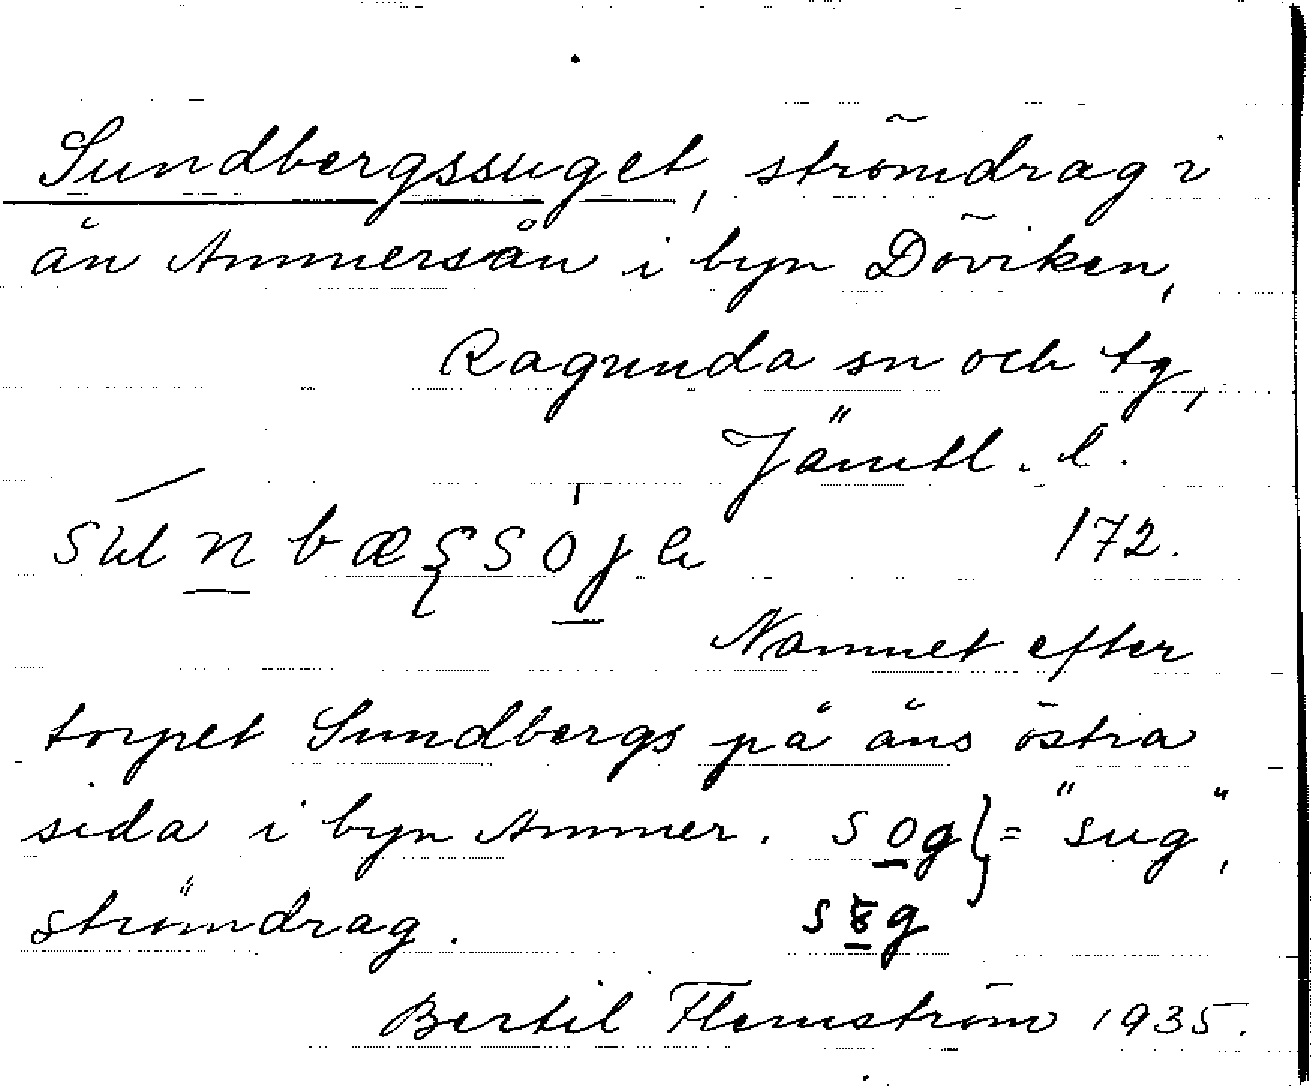 Sundbergssuget, strömdrag i
ån Ammersån i byn Döviken,
Ragunda sn och tg,
Jämtl. l.
172.
Namnet efter
torpet Sundbergs på åns östra
sida i byn Ammer. sog } = "sug",
strömdrag.
Bertil Flemström 1935.